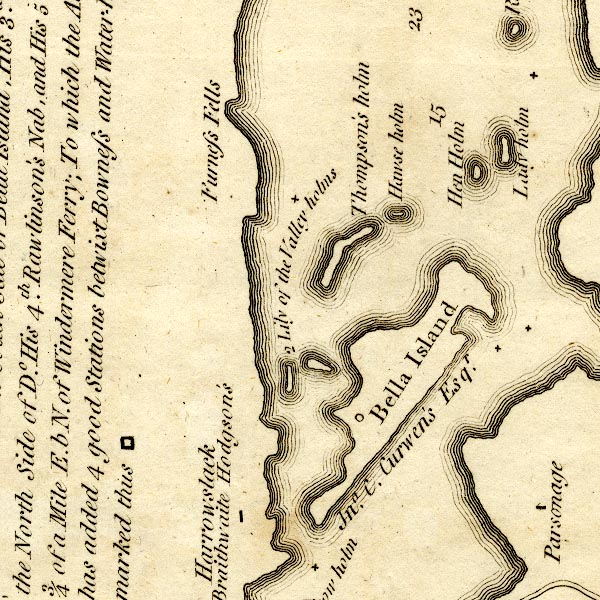 the North Side of D.º His 4.th Rawlinson's Nab, and His 5
3/4 of a Mile E.b.N. of Windermere Ferry; To which the A
has added 4 good Stations betwixt Bowneſs and Water-
marked thus
Furneſs Fells
Harrowslack
Braithwaite Hodgson's
2 Lily of the Valley holms
Thompson's holm
Hawse holm
23
15
Hen Holm
Lady holm
Bella Island
Jn.º C. Curwen's Esq.r
holm
Parsonage